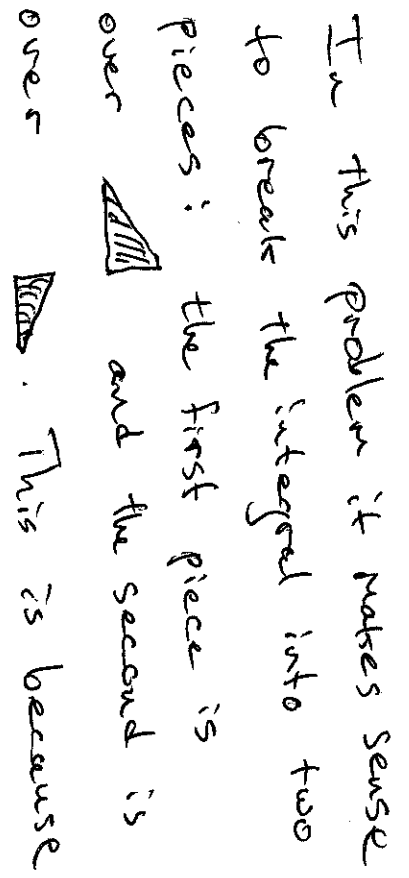 In this problem it makes sense
to break the integral into two
pieces: the first piece is
over and the second is
over . This is because